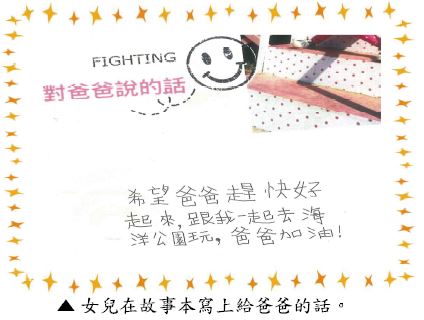 FIGHTING
對爸爸說的話
希望爸爸趕快好
起來,跟我一起去海
洋公園玩,爸爸加油!
▲女兒在故事本寫上給爸爸的話。